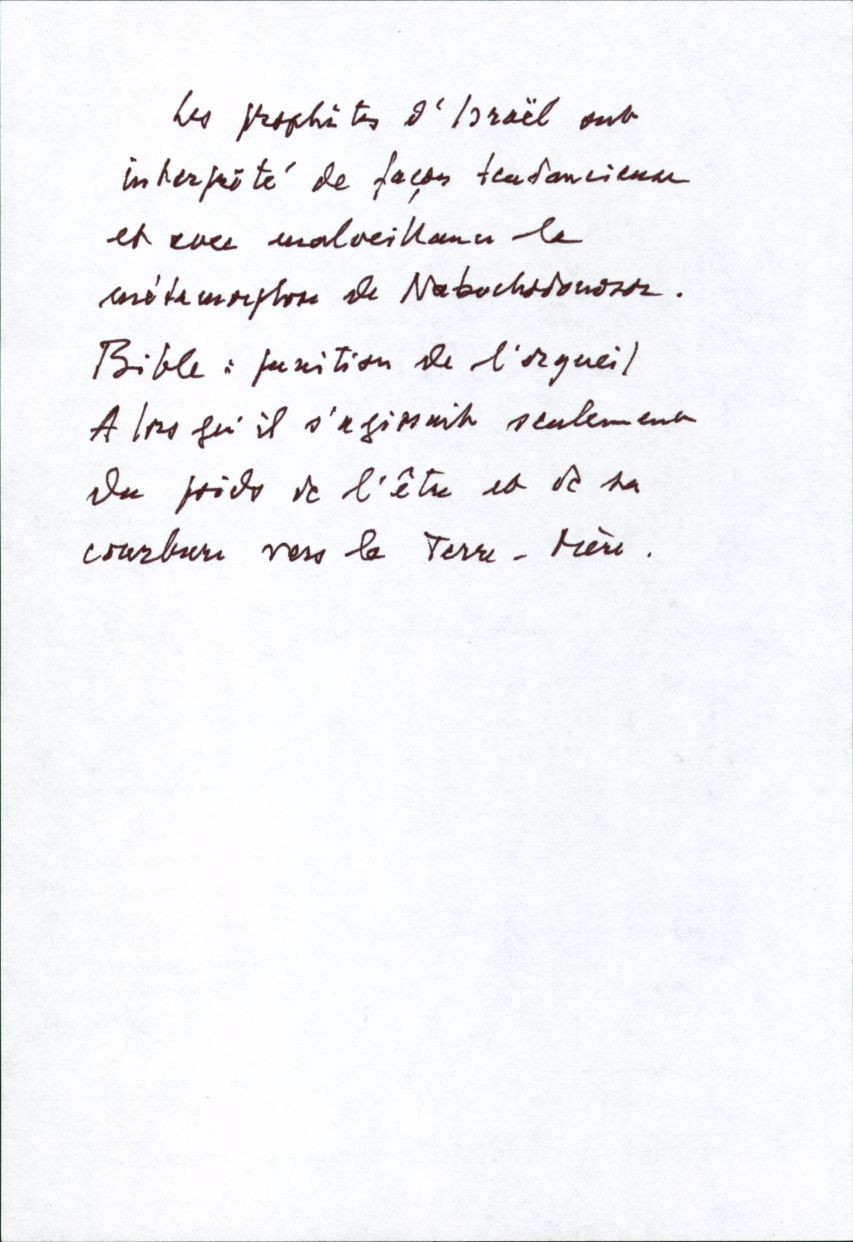 Les prophètes d'Israël ont
interprété de façon tendancieuse
et avec malveillance la
métamorphose de Nabuchodonosor.
Bible : punition de l'orgueil
Alors qu'il s'agissait seulement
du poids de l'être et de sa
courbure vers la Terre-Mère.